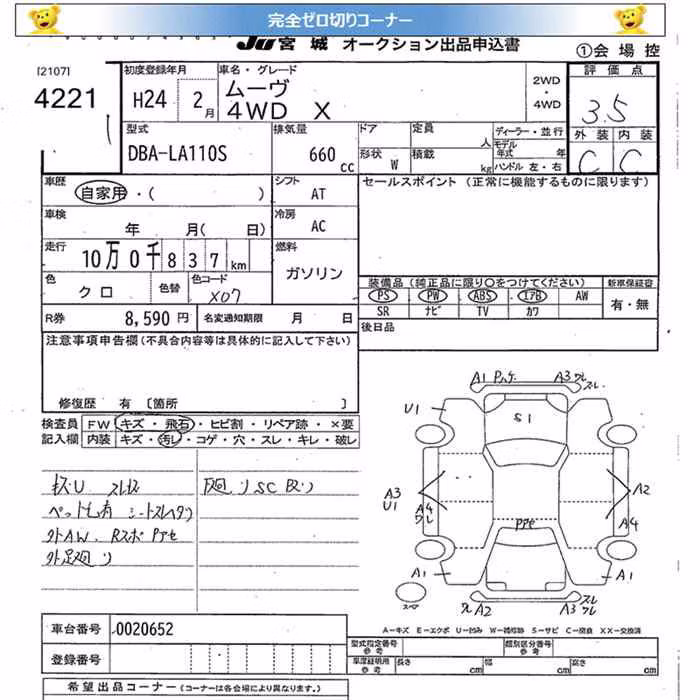 完全ゼロ切りコーナー
JU宮城 オークション出品申込書
①会場控
[2107]
4221
初度登録年月
H24 2月
車名・グレード
ムーヴ
4WD X
2WD
・
4WD
評価点
3.5
外装 内装
C C
型式
DBA-LA110S
排気量
660 cc
ドア 定員 人
形状 W 積載 kg
ディーラー・並行
モデル年式 年
ハンドル 左・右
車歴
自家用・( )
シフト
AT
セールスポイント (正常に機能するものに限ります)
車検
年 月( 日)
冷房
AC
走行
10万0千837km
燃料
ガソリン
色
クロ
色替
色コード
X07
装備品 (純正品に限り○をつけてください)
新車保証書
PS PW ABS エアB AW
有・無
SR ナビ TV カワ
R券 8,590円
名変通知期限 月 日
後日品
注意事項申告欄(不具合内容等は具体的に記入して下さい)
修復歴 有 [箇所 ]
検査員
記入欄
FW キズ・飛石・ヒビ割・リペア跡・×要
内装 キズ・汚レ・コゲ・穴・スレ・キレ・破レ
キズU スレキズ
ペット毛有
外AW、Rスポ
外足廻り
A1 A3
スレ
U1
S1
A3
U1
A4
ワレ
A2
A4
A1
A1
スペア
A2 A3 スレ
ワレ
A―キズ E―エクボ U―凹み W―補修跡 S―サビ C―腐食 XX―交換済
車台番号 0020652
登録番号
型式指定番号
参考
類別区分番号
参考
車庫証明用
参考
長さ cm 幅 cm 高さ cm
希望出品コーナー (コーナーは各会場により異なります。)